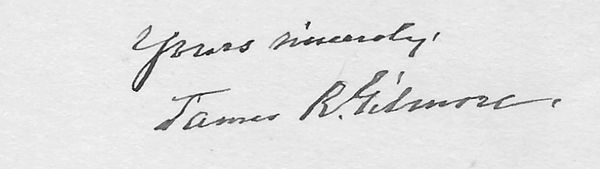 Yours sincerely,
James R. Gilmore.